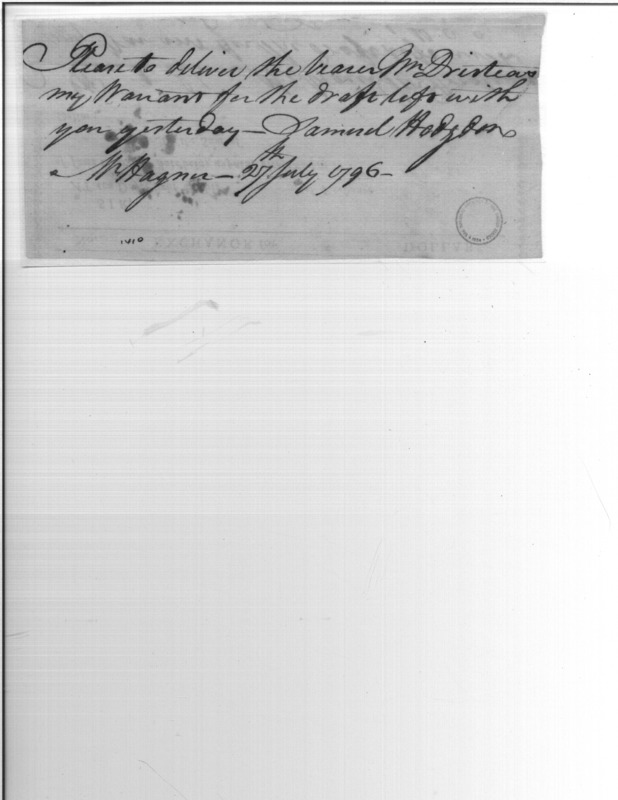 Please to deliver the bearer Wm
my Warrant for the draft left with
you yesterday — Samuel Hodgdon
Mr Hagner — 27th July 1796 —
1410
EXCHANGE
DOLLARS